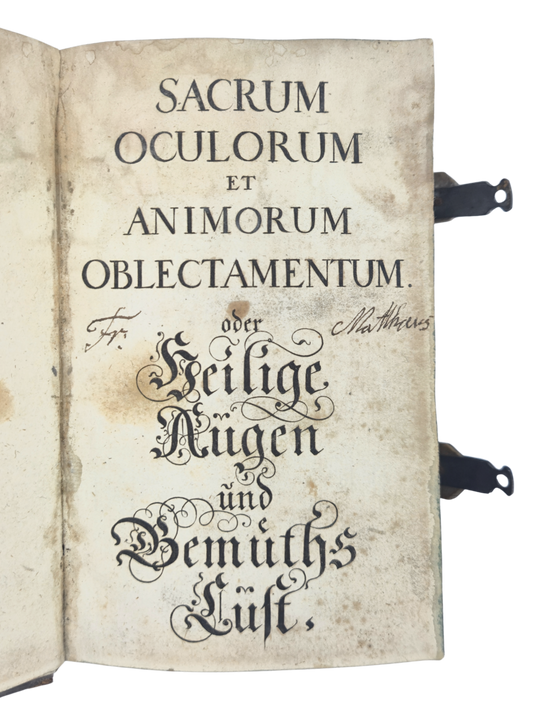 SACRUM
OCULORUM
ET
ANIMORUM
OBLECTAMENTUM.
Fr.
oder
Heilige
Aügen
ünd
Gemüths
Lüst.